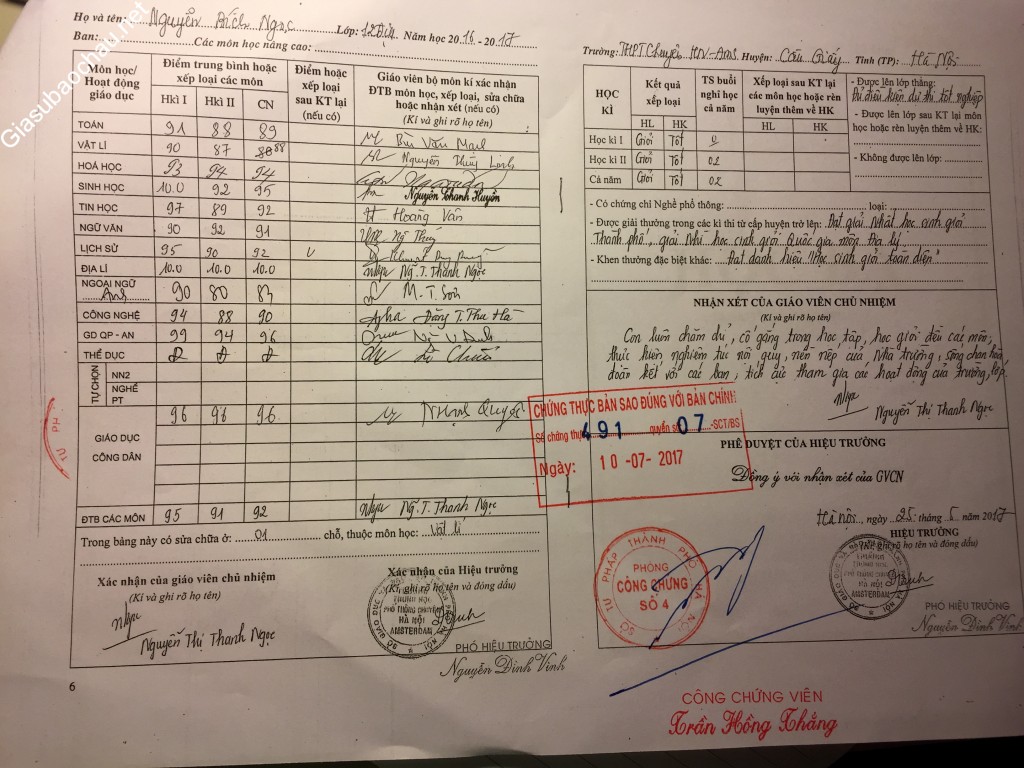 Giasubaochau.net
Họ và tên: Nguyễn Bích Ngọc Lớp: 12 Địa Năm học 2016 - 2017
Ban: Các môn học nâng cao:
Môn học/ Hoạt động giáo dục
Điểm trung bình hoặc xếp loại các môn
Hkì I Hkì II CN
Điểm hoặc xếp loại sau KT lại (nếu có)
Giáo viên bộ môn kí xác nhận ĐTB môn học, xếp loại, sửa chữa hoặc nhận xét (nếu có)
(Kí và ghi rõ họ tên)
TOÁN 91 88 89 Bùi Văn
VẬT LÍ 90 87 88 Nguyễn Thùy Linh
HOÁ HỌC 93 94 94
SINH HỌC 10.0 92 95 Nguyễn Thanh Huyền
TIN HỌC 97 89 92 Hoàng Vân
NGỮ VĂN 90 92 91
LỊCH SỬ 95 90 92
ĐỊA LÍ 10.0 10.0 10.0 Ng. T. Thanh Ngọc
NGOẠI NGỮ Anh 90 80 83 M. T. Sơn
CÔNG NGHỆ 94 88 90 Đặng T. Thu Hà
GD QP - AN 99 94 96
THỂ DỤC Đ Đ Đ
TỰ CHỌN
NN2
NGHỀ PT
GIÁO DỤC CÔNG DÂN 96 96 96
ĐTB CÁC MÔN 95 91 92 Ng. T. Thanh Ngọc
Trong bảng này có sửa chữa ở: 01 chỗ, thuộc môn học: Vật lí
Xác nhận của giáo viên chủ nhiệm
(Kí và ghi rõ họ tên)
Nguyễn Thị Thanh Ngọc
Xác nhận của Hiệu trưởng
(Kí, ghi rõ họ tên và đóng dấu)
PHỔ THÔNG CHUYÊN
HÀ NỘI
AMSTERDAM
PHÓ HIỆU TRƯỞNG
Nguyễn Đình Vinh
6
Trường: THPT Chuyên HN-Ams. Huyện: Cầu Giấy Tỉnh (TP): Hà Nội
HỌC KÌ
Kết quả xếp loại
HL HK
TS buổi nghỉ học cả năm
Xếp loại sau KT lại các môn học hoặc rèn luyện thêm về HK
HL HK
Học kì I Giỏi Tốt
Học kì II Giỏi Tốt 02
Cả năm Giỏi Tốt 02
- Được lên lớp thẳng:
Đủ điều kiện dự thi tốt nghiệp
- Được lên lớp sau KT lại môn học hoặc rèn luyện thêm về HK:
- Không được lên lớp:
- Có chứng chỉ Nghề phổ thông: loại:
- Được giải thưởng trong các kì thi từ cấp huyện trở lên: Đạt giải Nhất học sinh giỏi
Thành phố, giải Nhì học sinh giỏi Quốc gia môn Địa lý
- Khen thưởng đặc biệt khác: Đạt danh hiệu "Học sinh giỏi toàn diện"
NHẬN XÉT CỦA GIÁO VIÊN CHỦ NHIỆM
(Kí và ghi rõ họ tên)
Con luôn chăm chỉ, cố gắng trong học tập, học giỏi đều các môn,
thực hiện nghiêm túc nội quy, nền nếp của Nhà trường, sống chan hoà
đoàn kết với các bạn, tích cực tham gia các hoạt động của trường, lớp
Nguyễn Thị Thanh Ngọc
CHỨNG THỰC BẢN SAO ĐÚNG VỚI BẢN CHÍNH
Số chứng thực 491 quyển số 07 -SCT/BS
Ngày: 10 -07- 2017
PHÊ DUYỆT CỦA HIỆU TRƯỞNG
Đồng ý với nhận xét của GVCN
Hà Nội, ngày 25 tháng 5 năm 2017
HIỆU TRƯỞNG
(Kí, ghi rõ họ tên và đóng dấu)
SỞ TƯ PHÁP THÀNH PHỐ HÀ NỘI
PHÒNG
CÔNG CHỨNG
SỐ 4
HÀ NỘI
AMSTERDAM
PHÓ HIỆU TRƯỞNG
Nguyễn Đình Vinh
CÔNG CHỨNG VIÊN
Trần Hồng Thắng